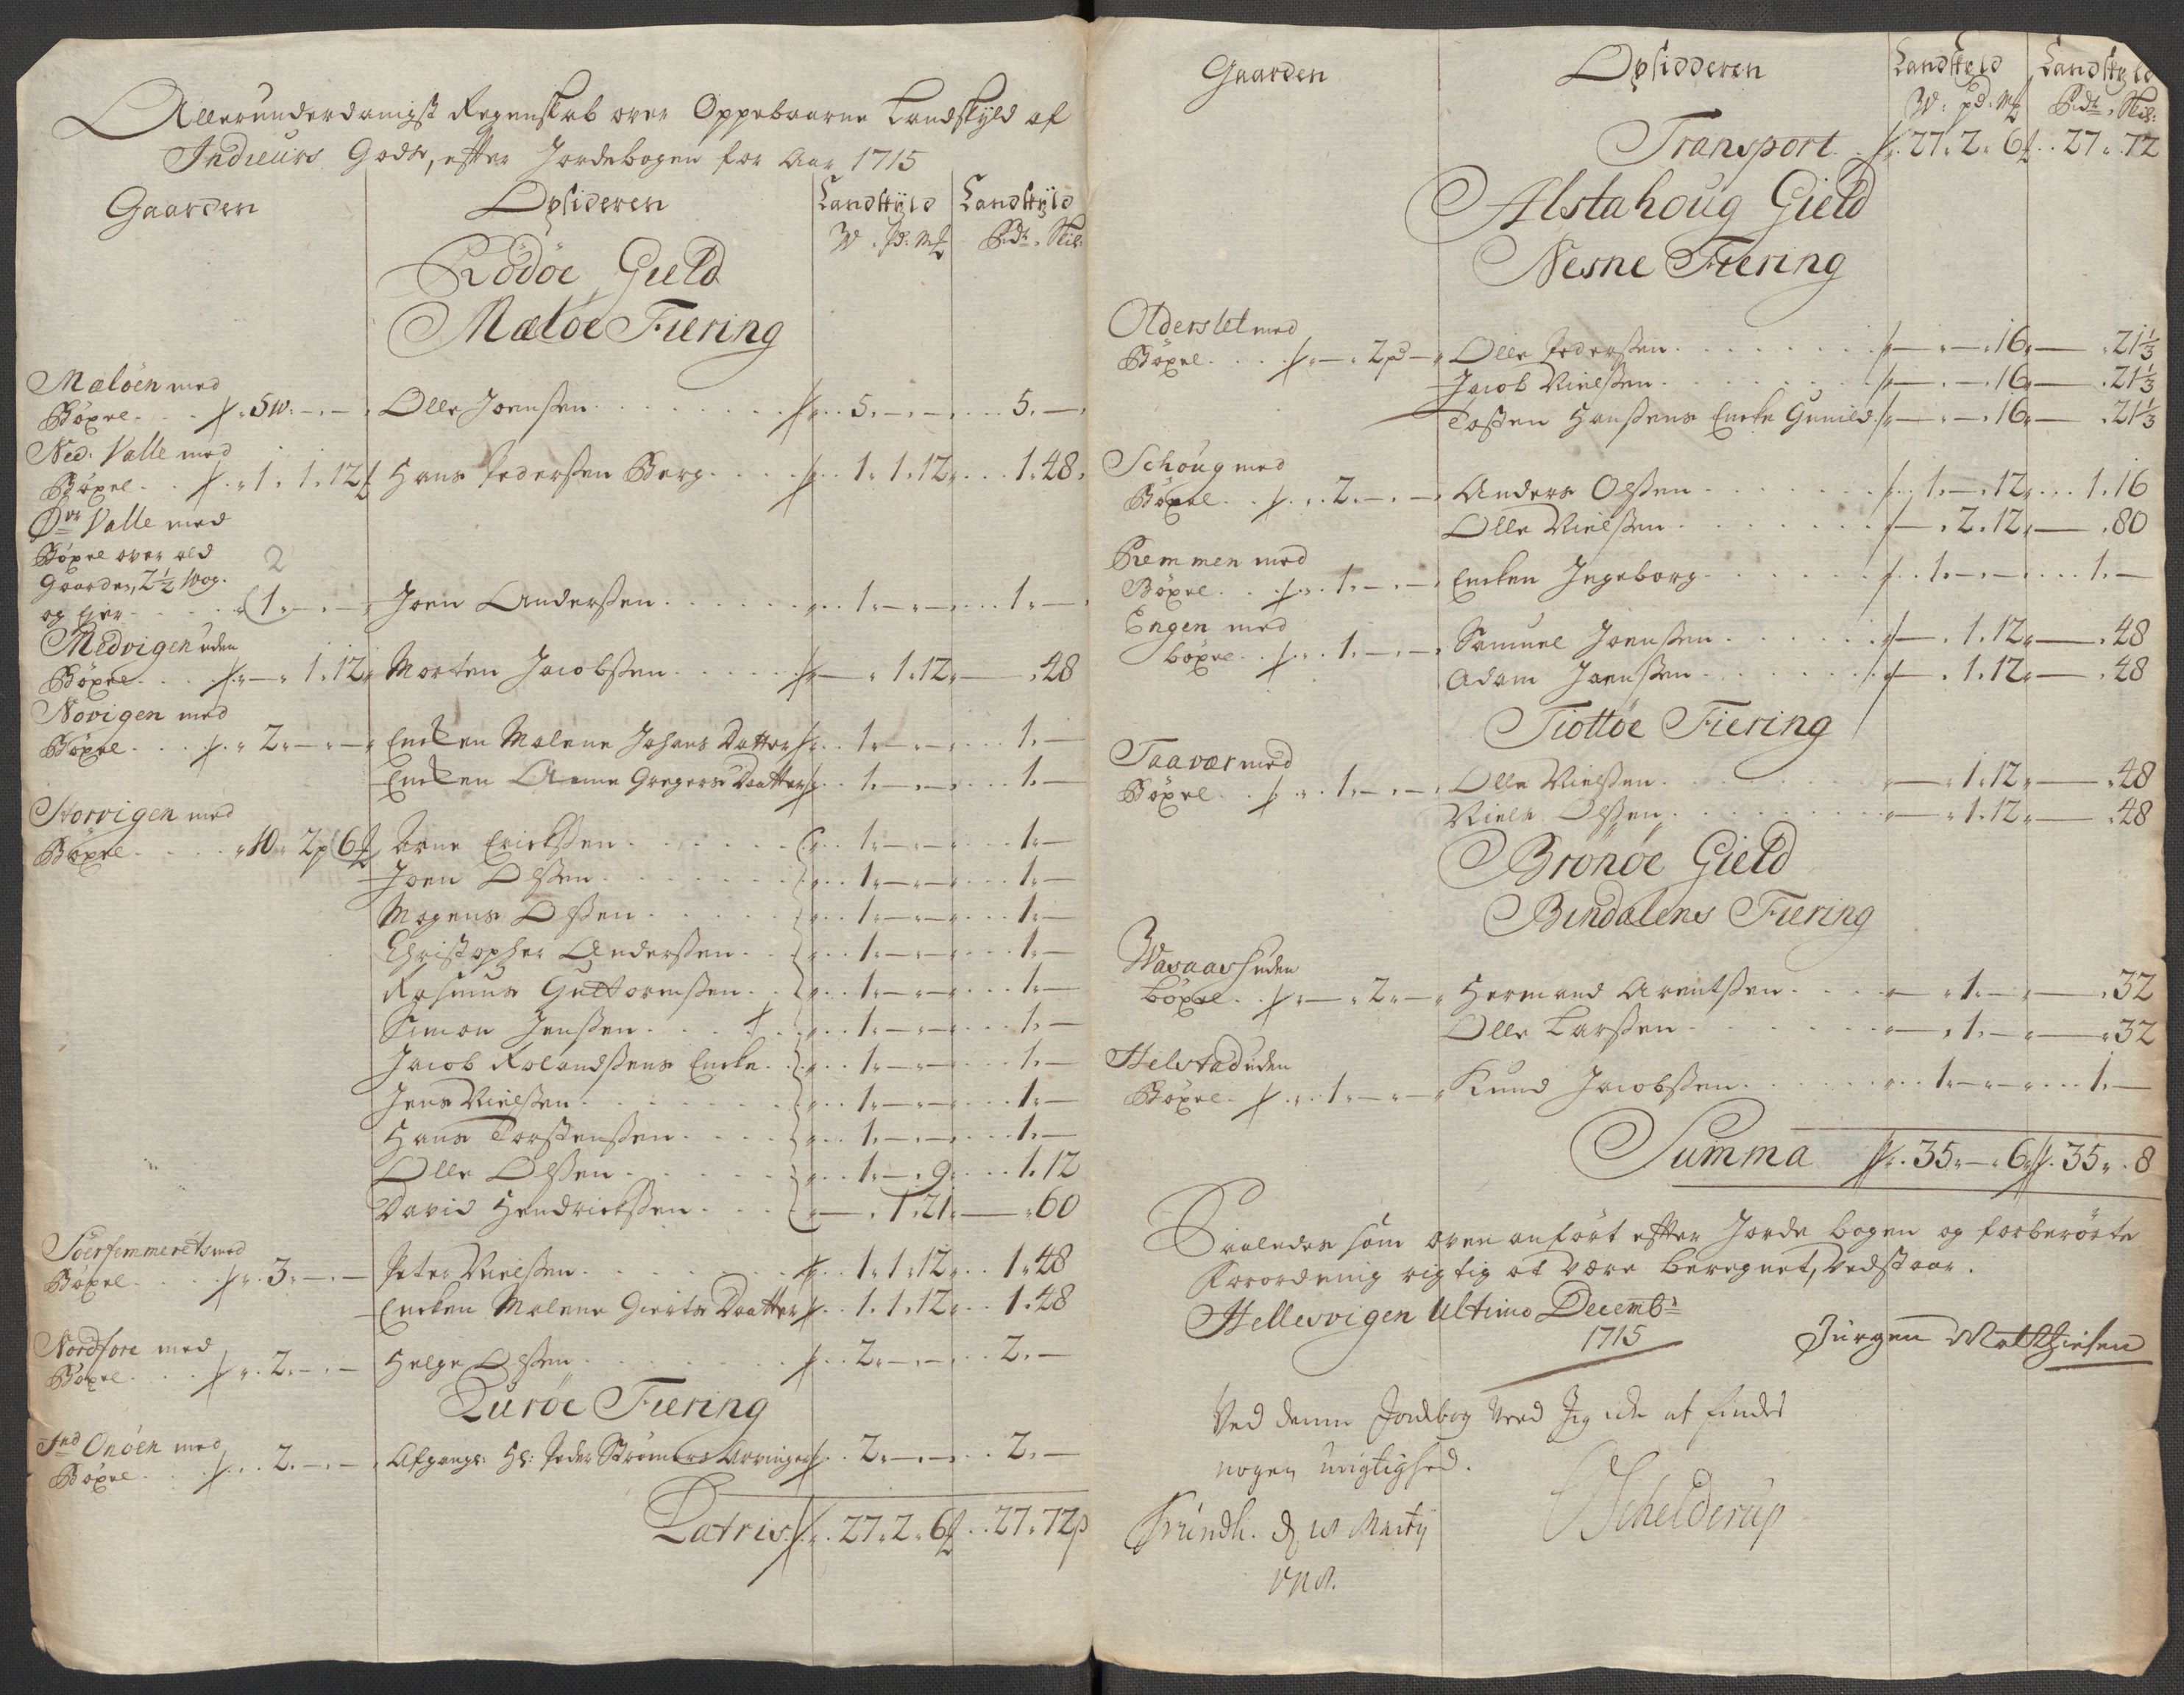 Allerunderdanigst Regenskab over Oppebaarne Landskyld af
Indieurs Gods, effter Jordebogen for Aar 1715
Gaarden Opsideren Landskyld Landskyld
W. pd: Mk Rdr. Skil:
Rödöe Gield
Meløe Fiering
Meløen med
Böxel 5 W. — . — Olle Joensen 5. — . — 5. —
Ned: Valle med
Böxel 1. 1. 12 Hans Pedersen Berg 1. 1. 12 1. 48.
Øvr Valle med
Böxel over ald 2
Gaarden, 2½ Wog.
og Ejer 1. — . — Joen Andersen 1. — . — 1. —
Medvigen uden
Böxel — . 1. 12 Morten Jacobsen — . 1. 12 — . 48
Novigen med
Böxel 2. — . — Encken Malene Johans Datter 1. — . — 1. —
Encken Anne Gregers Daatter 1. — . — 1. —
Storvigen med
Böxel 10. 2 p 6 Arne Ericksen 1. — . — 1. —
Joen Olsen 1. — . — 1. —
Mogens Olsen 1. — . — 1. —
Christopher Andersen 1. — . — 1. —
Rasmus Guttormsen 1. — . — 1. —
Simon Jensen 1. — . — 1. —
Jacob Rolandsens Encke 1. — . — 1. —
Jens Nielsen 1. — . — 1. —
Hans Torstensen 1. — . — 1. —
Olle Olsen 1. — . 9 1. 12
David Hendricksen — . 1. 21 — . 60
Söerfemmerets med
Böxel 3. — . — Peter Nielsen 1. 1. 12 1. 48
Encken Malene Gierts Daatter 1. 1. 12 1. 48
Nordfore med
Böxel 2. — . — Helge Olsen 2. — . — 2. —
Luröe Fiering
Ind Onöen med
Böxel 2. — . — Afgangne Hr: Peder Strømers Arvinger 2. — . — 2. —
Latris 27. 2. 6 27. 72
Gaarden Opsidderen Landskyld Landskyld
W: pd: Mk Rdr. Skil:
Transport 27. 2. 6 27. 72
Alstahoug Gield
Nesne Fiering
Olderslet med
Böxel — . 2 pd — Olle Pedersen — . — . 16 — . 21⅓
Jacob Nielsen — . — . 16 — . 21⅓
Tosten Hansens Encke Gunild — . — . 16 — . 21⅓
Schoug med
Böxel 2. — . — Anders Olsen 1. — . 12 1. 16
Olle Nielsen — . 2. 12 — . 80
Remmen med
Böxel 1. — . — Encken Ingeborg 1. — . — 1. —
Engen med
böxel 1. — . — Samuel Joensen — . 1. 12 — . 48
Adam Joensen — . 1. 12 — . 48
Tiottöe Fiering
Taavær med
Böxel 1. — . — Olle Nielsen — . 1. 12 — . 48
Niels Olsen — . 1. 12 — . 48
Brönöe Gield
Bindalens Fiering
Wasaas uden
böxel — . 2. — Hermand Arentsen — . 1. — — . 32
Olle Larsen — . 1. — — . 32
Helstad uden
Böxel 1. — . — Knud Jacobsen 1. — . — 1. —
Summa 35. — . 6 35. 8
Saaledes som oven anfört effter Jorde bogen og forberörte
Forordning rigtig at være beregnet, Vedstaar.
Hellesvigen Ultimo Decembr
1715 Jürgen Matthiesen
Ved denne Jordebog veed Jeg icke at findes
nogen urigtighed.
Trundh. d 18 Marty OSchelderup
1718.